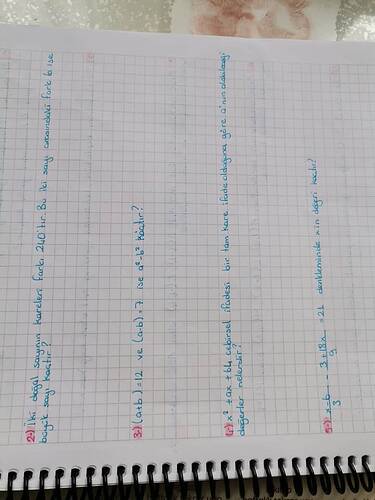 2-) İki doğal sayının kareleri farkı 240'tır. Bu iki sayı arasındaki fark 6 ise
büyük sayı kaçtır?
3-) (a+b) = 12 ve (a-b) = 7 ise a²-b² kaçtır?
4-) x² + ax + 64 cebirsel ifadesi bir tam kare ifade olduğuna göre a'nın alabileceği
değerler nelerdir?
5-) x-6/3 - 3+18x/9 = 21 denkleminde x'in değeri kaçtır?